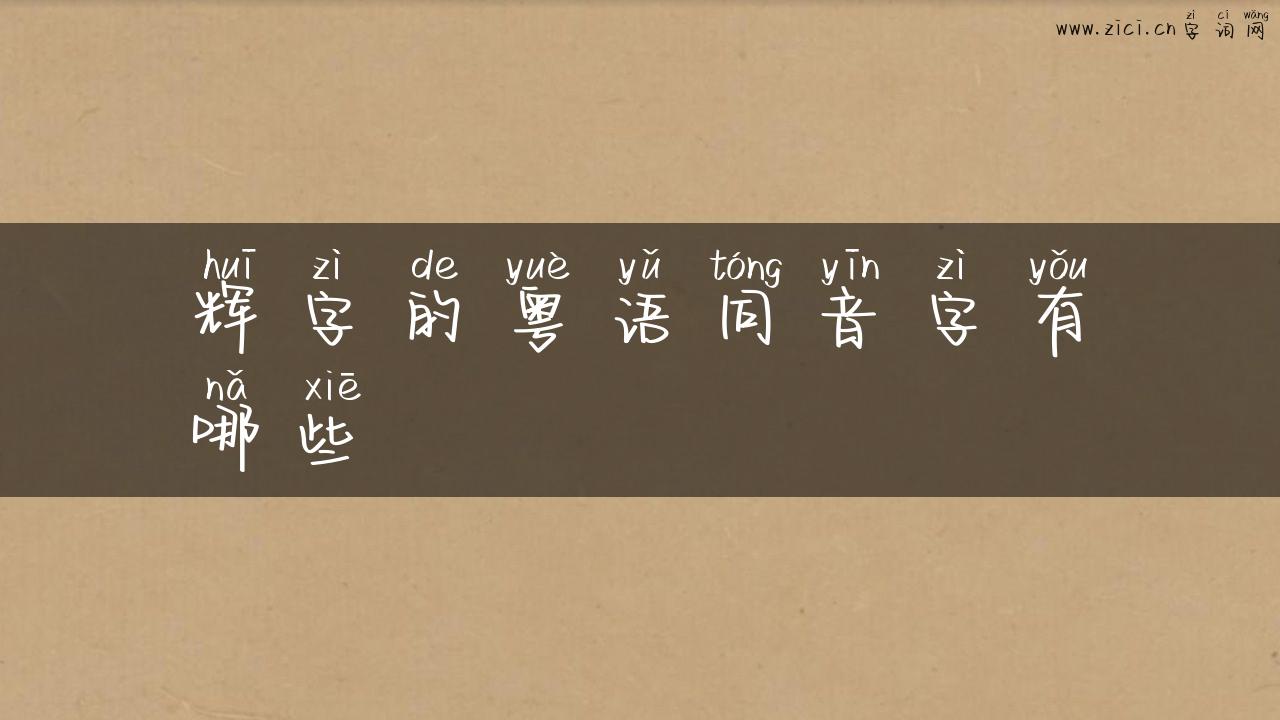 zì cí wǎng
www.zici.cn 字 词 网
huī zì de yuè yǔ tóng yīn zì yǒu
辉 字 的 粤 语 同 音 字 有
nǎ xiē
哪 些